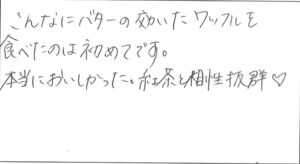 こんなにバターの効いたワッフルを
食べたのは初めてです。
本当においしかった。紅茶と相性抜群♡